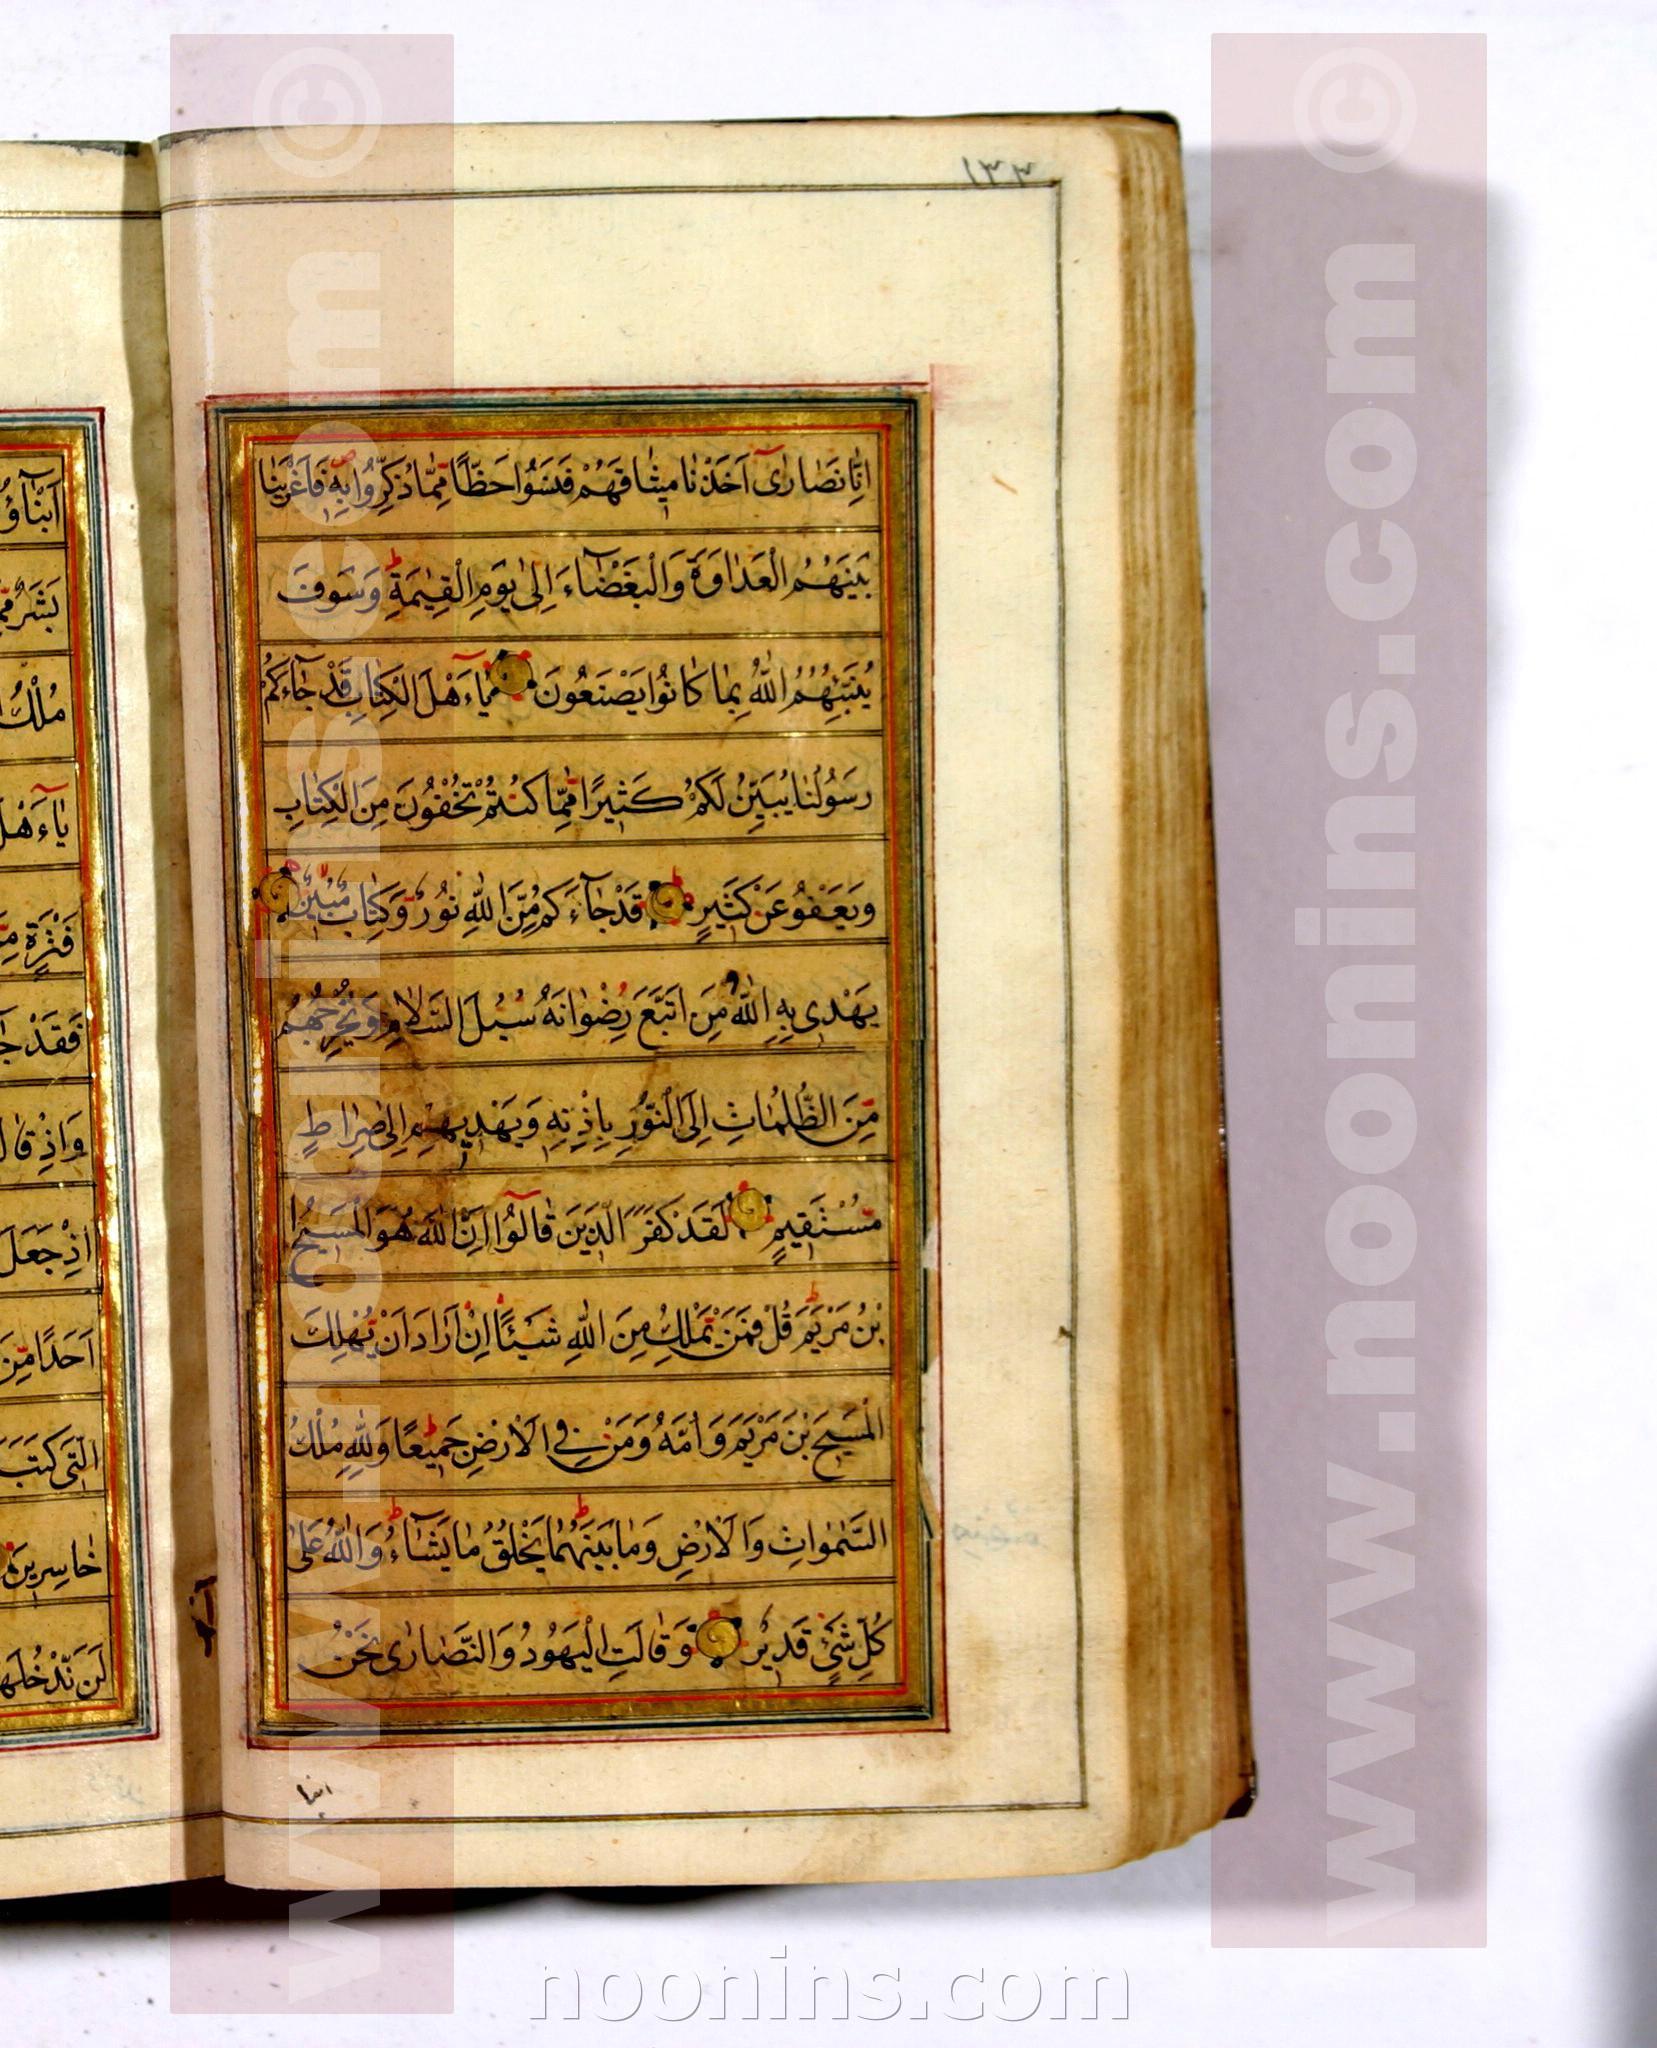 ۱۳۳
اِنّا نَصارىٓ اَخَذْنا ميثاقَهُمْ فَنَسُوا حَظًّا مِمّا ذُكِّرُوا بِهٖ فَاَغْرَيْنا
بَيْنَهُمُ الْعَداوَةَ وَالْبَغْضآءَ اِلىٰ يَوْمِ الْقِيٰمَةِ وَسَوْفَ
يُنَبِّئُهُمُ اللهُ بِما كانُوا يَصْنَعُونَ يآءَهْلَ الْكِتابِ قَدْ جآءَكُمْ
رَسُولُنا يُبَيِّنُ لَكُمْ كَثيرًا مِمّا كُنْتُمْ تُخْفُونَ مِنَ الْكِتابِ
وَيَعْفُو عَنْ كَثيرٍ قَدْ جآءَكُمْ مِنَ اللهِ نُورٌ وَكِتابٌ مُبينٌ
يَهْدى بِهِ اللهُ مَنِ اتَّبَعَ رِضْوانَهُ سُبُلَ السَّلامِ وَيُخْرِجُهُمْ
مِنَ الظُّلُماتِ اِلَى النُّورِ بِاِذْنِهٖ وَيَهْديهِمْ اِلىٰ صِراطٍ
مُسْتَقيمٍ لَقَدْ كَفَرَ الَّذينَ قالُوٓا اِنَّ اللهَ هُوَ الْمَسيحُ
بْنُ مَرْيَمَ قُلْ فَمَنْ يَمْلِكُ مِنَ اللهِ شَيْئًا اِنْ اَرادَ اَنْ يُهْلِكَ
الْمَسيحَ بْنَ مَرْيَمَ وَاُمَّهُ وَمَنْ فِى الْاَرْضِ جَميعًا وَلِلّٰهِ مُلْكُ
السَّمٰواتِ وَالْاَرْضِ وَما بَيْنَهُما يَخْلُقُ ما يَشآءُ وَاللهُ عَلىٰ
كُلِّ شَىْءٍ قَديرٌ وَقالَتِ الْيَهُودُ وَالنَّصارىٰ نَحْنُ
ابنا
اَبْنآؤُ
بَشَرٌ
مُلْكُ
يآءَهْلَ
فَتْرَةٍ
فَقَدْ
وَاِذْ قالَ
اِذْ جَعَلَ
اَحَدًا مِنَ
الَّتى كَتَبَ
خاسِرينَ
لَنْ نَدْخُلَها
© www.noonins.com
© www.noonins.com
noonins.com